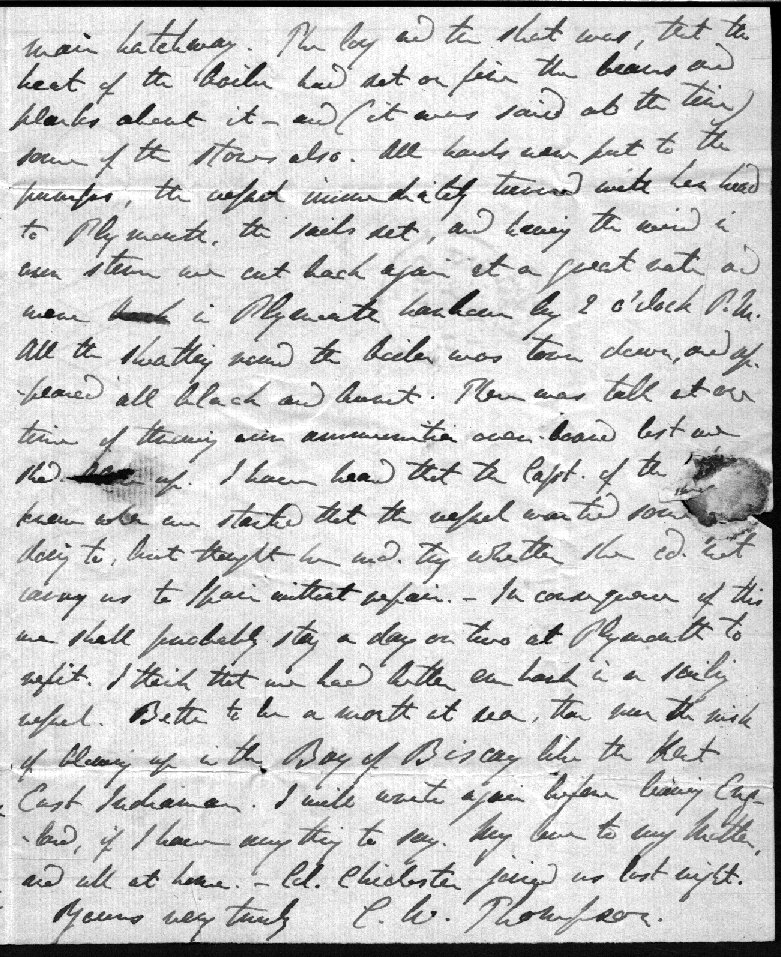 main hatchway. The long and the short was, that the
heat of the boiler had set on fire the beams and
planks about it – and (it was said at the time)
some of the stores also. All hands were put to the
pumps, the vessel immediately turned with her head
to Plymouth, the sails set, and having the wind in
our stern we cut back again at a great rate and
were in Plymouth harbour by 2 o'clock P.M.
All the sheathing round the boiler was torn down, and ap-
-peared all black and burnt. There was talk at one
time of throwing our ammunition over-board lest we
shd. up. I have heard that the Capt. of the
knew when we started that the vessel wanted some
doing to, but thought he wd. try whether she cd. not
carry us to Spain without repair. – In consequence of this
we shall probably stay a day or two at Plymouth to
refit. I think that we had better embark in a sailing
vessel. Better to be a month at sea, than run the risk
of blowing up in the Bay of Biscay like the Kent
East Indiaman. I will write again before leaving Eng-
-land, if I have any thing to say. My love to my Mother,
and all at home. – Col. Chichester joined us last night.
Yours very truly C. W. Thompson.